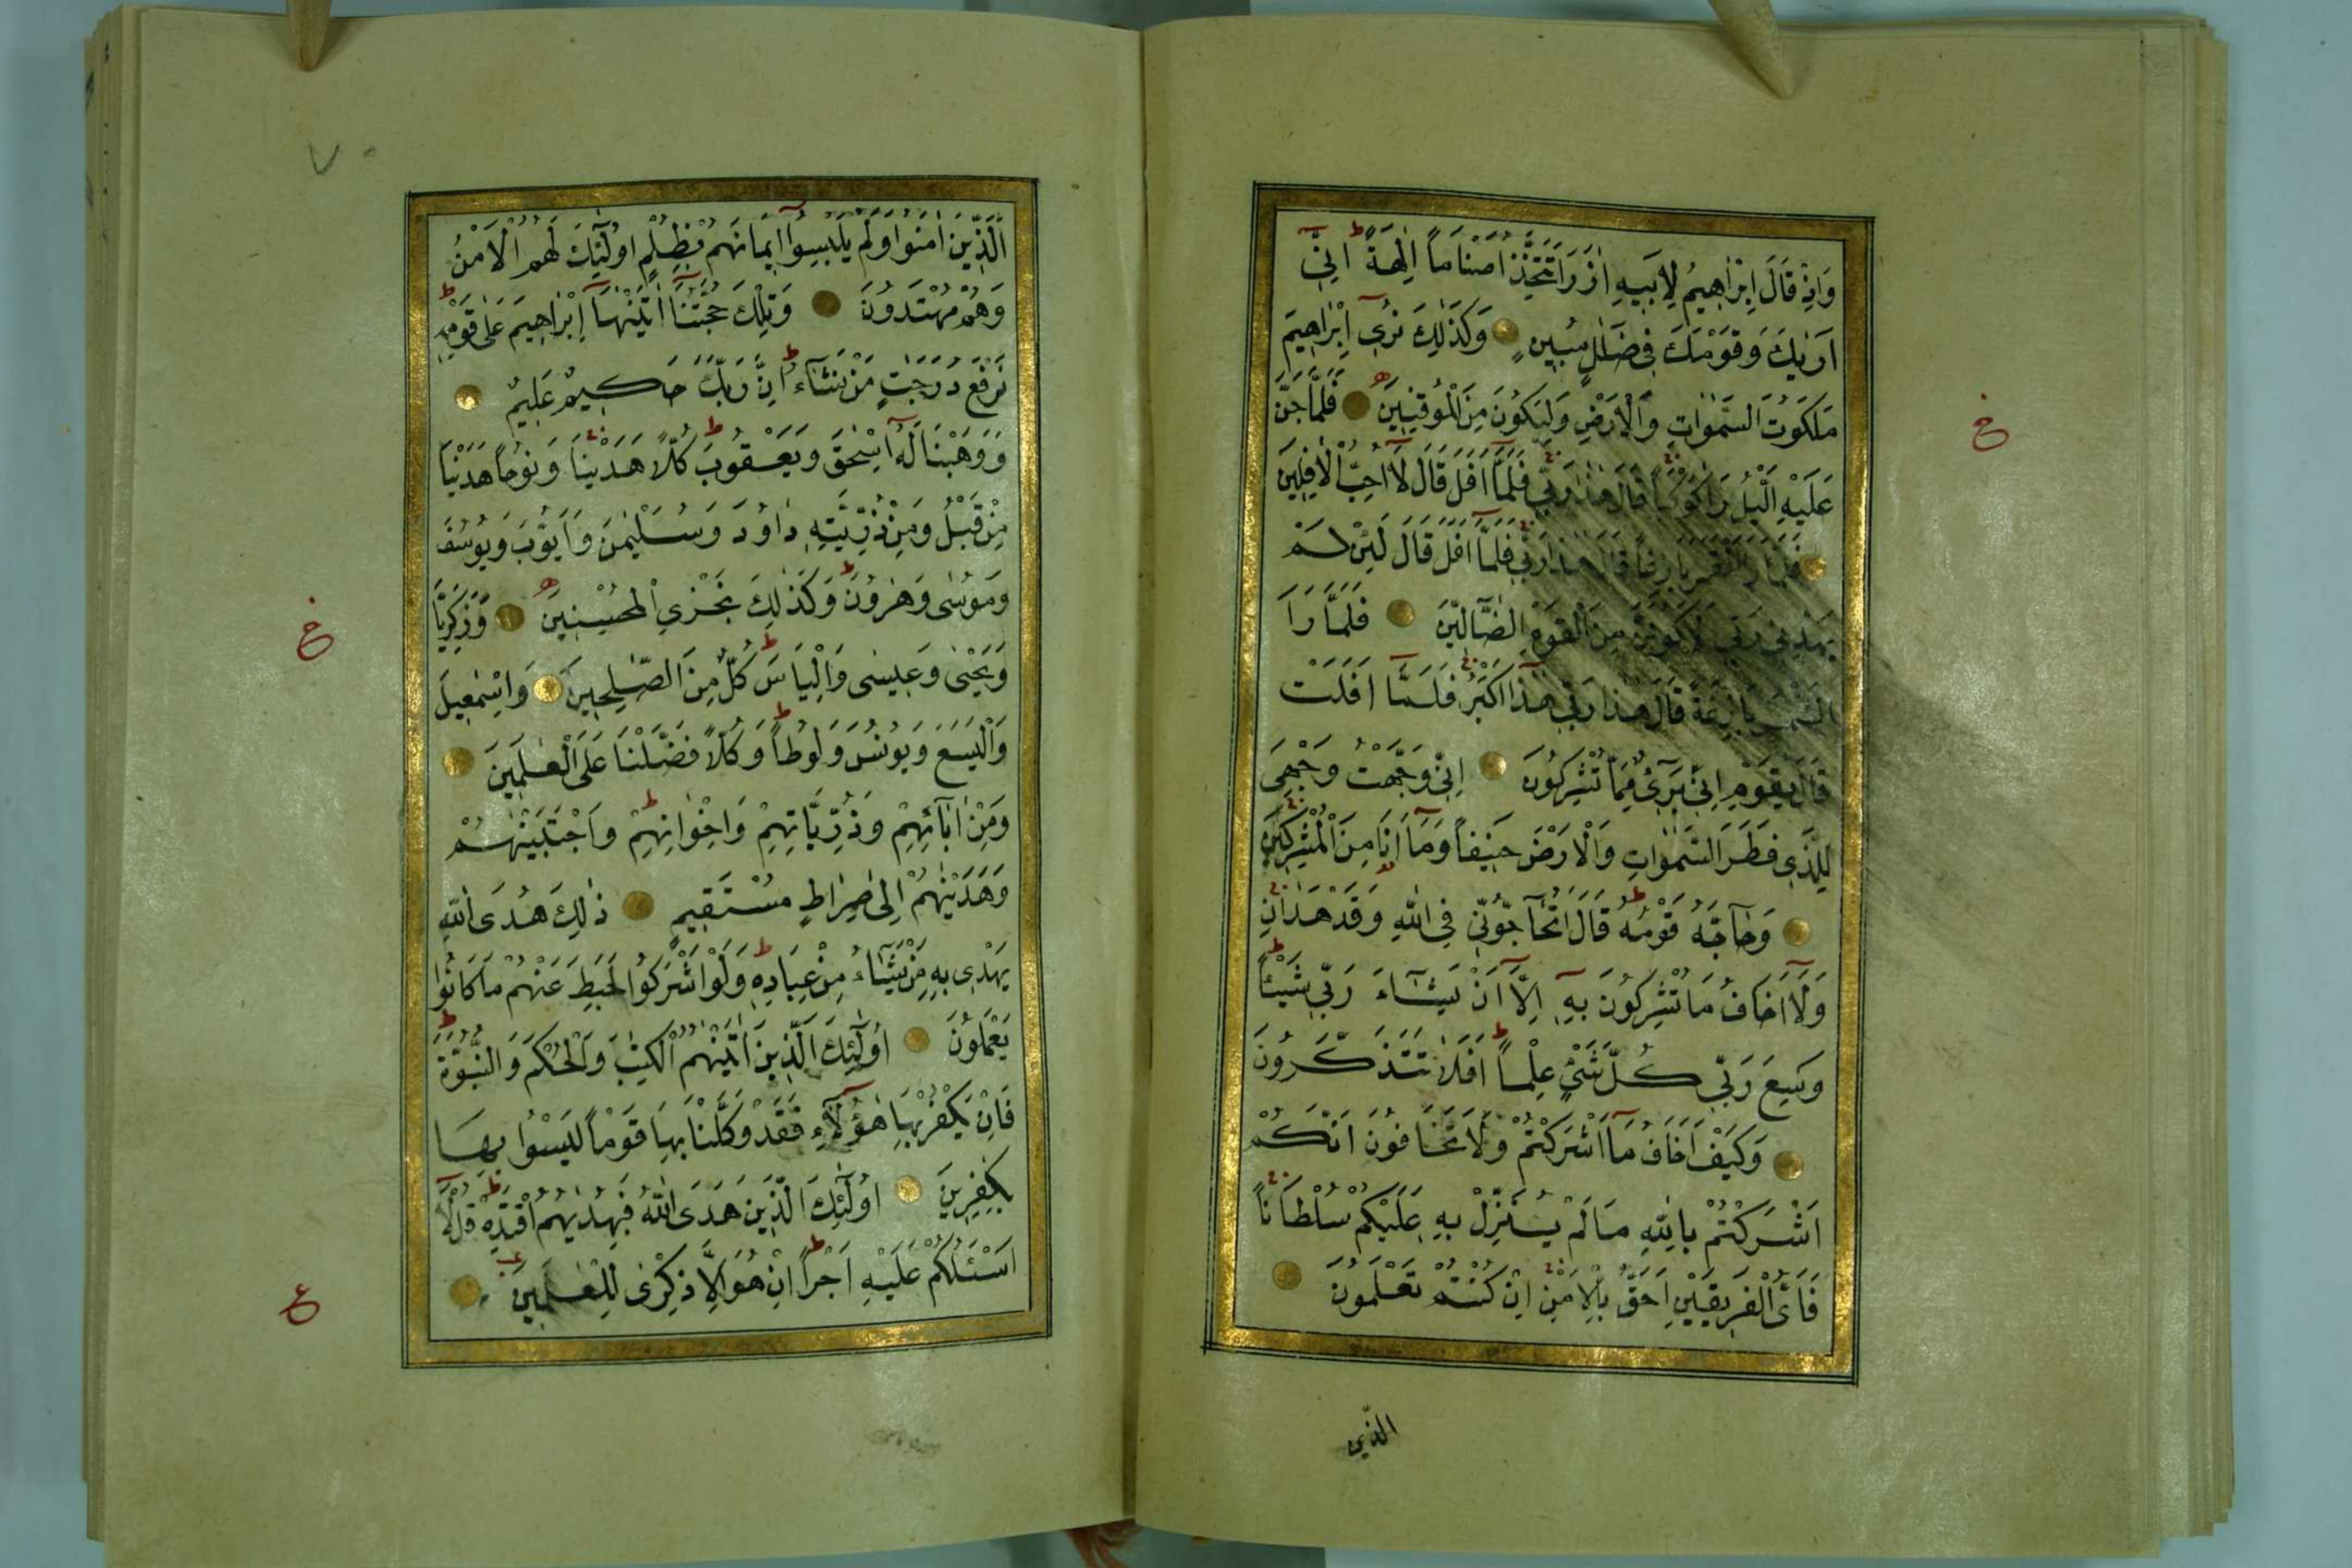 وَاِذْ قَالَ اِبْرٰاهِيمُ لِاَبٖيهِ اٰزَرَ اَتَتَّخِذُ اَصْنَاماً اٰلِهَةً اِنّٖي
اَرٰيكَ وَقَوْمَكَ فٖي ضَلَالٍ مُبٖينٍ وَكَذٰلِكَ نُرٖي اِبْرٰاهٖيمَ
مَلَكُوتَ السَّمٰوَاتِ وَالْاَرْضِ وَلِيَكُونَ مِنَ الْمُوقِنٖينَ فَلَمَّا جَنَّ
عَلَيْهِ الَّيْلُ رَاٰ كَوْكَباً قَالَ هٰذَا رَبّٖي فَلَمَّا اَفَلَ قَالَ لَا اُحِبُّ الْاٰفِلٖينَ
فَلَمَّا رَاَ الْقَمَرَ بَازِغاً قَالَ هٰذَا رَبّٖي فَلَمَّا اَفَلَ قَالَ لَئِنْ لَمْ
يَهْدِنٖي رَبّٖي لَاَكُونَنَّ مِنَ الْقَوْمِ الضَّٓالّٖينَ فَلَمَّا رَاَ
الشَّمْسَ بَازِغَةً قَالَ هٰذَا رَبّٖي هٰذَا اَكْبَرُ فَلَمَّا اَفَلَتْ
قَالَ يَقَوْمِ اِنّٖي بَرٖٓئٌ مِمَّا تُشْرِكُونَ اِنّٖي وَجَّهْتُ وَجْهِيَ
لِلَّذٖي فَطَرَ السَّمٰوَاتِ وَالْاَرْضَ حَنٖيفاً وَمَا اَنَا مِنَ الْمُشْرِكٖينَ
وَحَٓاجَّهُ قَوْمُهُ قَالَ اَتُحَٓاجُّٓونّٖي فِي اللّٰهِ وَقَدْ هَدٰانِ
وَلَا اَخَافُ مَا تُشْرِكُونَ بِهٖ اِلَّا اَنْ يَشَٓاءَ رَبّٖي شَيْئاً
وَسِعَ رَبّٖي كُلَّ شَيْءٍ عِلْماً اَفَلَا تَتَذَكَّرُونَ
وَكَيْفَ اَخَافُ مَا اَشْرَكْتُمْ وَلَا تَخَافُونَ اَنَّكُمْ
اَشْرَكْتُمْ بِاللّٰهِ مَا لَمْ يُنَزِّلْ بِهٖ عَلَيْكُمْ سُلْطَاناً
فَاَيُّ الْفَرٖيقَيْنِ اَحَقُّ بِالْاَمْنِ اِنْ كُنْتُمْ تَعْلَمُونَ
الذين
خ
٧٠
اَلَّذٖينَ اٰمَنُوا وَلَمْ يَلْبِسُوا اٖيمَانَهُمْ بِظُلْمٍ اُولٰٓئِكَ لَهُمُ الْاَمْنُ
وَهُمْ مُهْتَدُونَ وَتِلْكَ حُجَّتُنَا اٰتَيْنٰهَا اِبْرٰاهٖيمَ عَلٰى قَوْمِهٖ
نَرْفَعُ دَرَجٰتٍ مَنْ نَشَٓاءُ اِنَّ رَبَّكَ حَكٖيمٌ عَلٖيمٌ
وَوَهَبْنَا لَهُ اِسْحٰقَ وَيَعْقُوبَ كُلّاً هَدَيْنَا وَنُوحاً هَدَيْنَا
مِنْ قَبْلُ وَمِنْ ذُرِّيَّتِهٖ دَاوُدَ وَسُلَيْمٰنَ وَاَيُّوبَ وَيُوسُفَ
وَمُوسٰى وَهٰرُونَ وَكَذٰلِكَ نَجْزِي الْمُحْسِنٖينَ وَزَكَرِيَّا
وَيَحْيٰى وَعٖيسٰى وَاِلْيَاسَ كُلٌّ مِنَ الصّٰلِحٖينَ وَاِسْمٰعٖيلَ
وَالْيَسَعَ وَيُونُسَ وَلُوطاً وَكُلّاً فَضَّلْنَا عَلَى الْعٰلَمٖينَ
وَمِنْ اٰبَٓائِهِمْ وَذُرِّيَّاتِهِمْ وَاِخْوَانِهِمْ وَاجْتَبَيْنٰهُمْ
وَهَدَيْنٰهُمْ اِلٰى صِرَاطٍ مُسْتَقٖيمٍ ذٰلِكَ هُدَى اللّٰهِ
يَهْدٖي بِهٖ مَنْ يَشَٓاءُ مِنْ عِبَادِهٖ وَلَوْ اَشْرَكُوا لَحَبِطَ عَنْهُمْ مَا كَانُوا
يَعْمَلُونَ اُولٰٓئِكَ الَّذٖينَ اٰتَيْنٰهُمُ الْكِتٰبَ وَالْحُكْمَ وَالنُّبُوَّةَ
فَاِنْ يَكْفُرْ بِهَا هٰٓؤُلَاءِ فَقَدْ وَكَّلْنَا بِهَا قَوْماً لَيْسُوا بِهَا
بِكٰفِرٖينَ اُولٰٓئِكَ الَّذٖينَ هَدَى اللّٰهُ فَبِهُدٰيهُمُ اقْتَدِهْ قُلْ لَا
اَسْئَلُكُمْ عَلَيْهِ اَجْراً اِنْ هُوَ اِلَّا ذِكْرٰى لِلْعٰلَمٖينَ
خ
ع